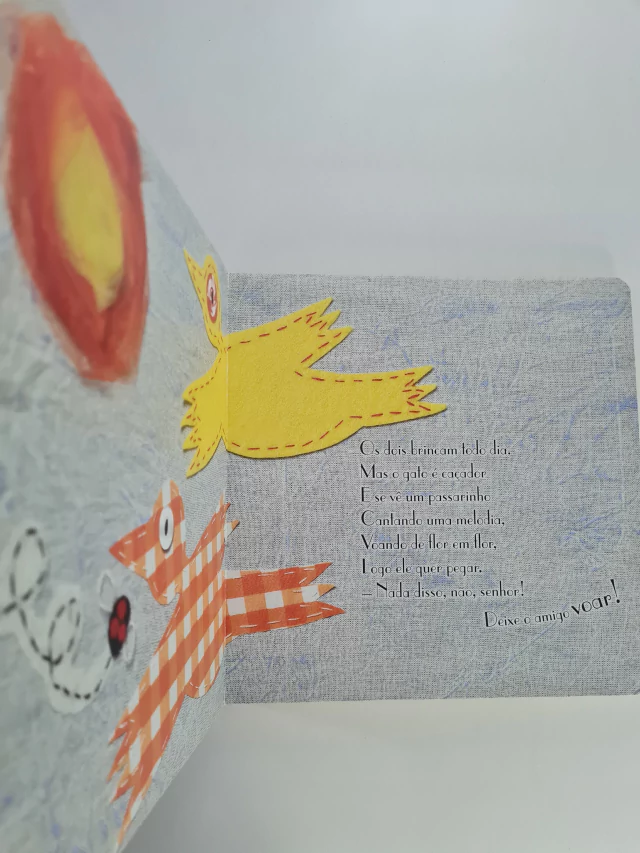 Os dois brincam todo dia.
Mas o gato é caçador
E se vê um passarinho
Cantando uma melodia,
Voando de flor em flor,
Logo ele quer pegar.
– Nada disso, não, senhor!
Deixe o amigo voar!